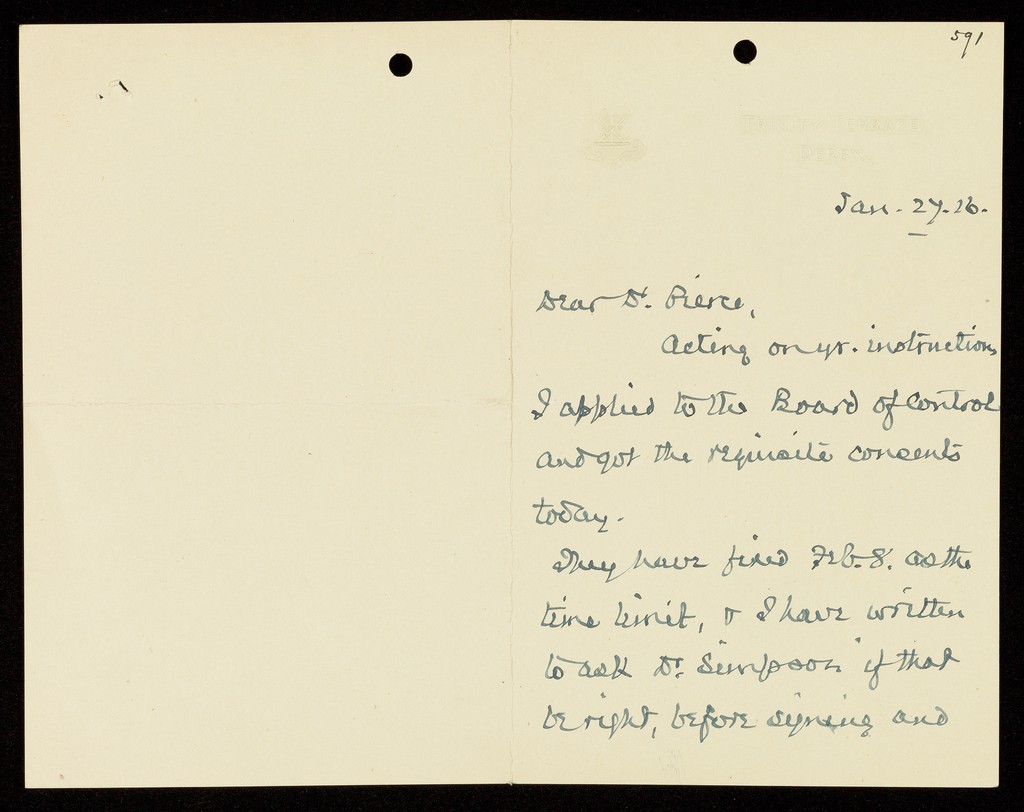 591
Jan. 27. 16.
Dear Dr. Pierce,
Acting on yr. instructions
I applied to the Board of Control
and got the requisite consents
today.
They have fixed Feb. 8. as the
time limit, & I have written
to ask Dr. Simpson if that
be right, before signing and